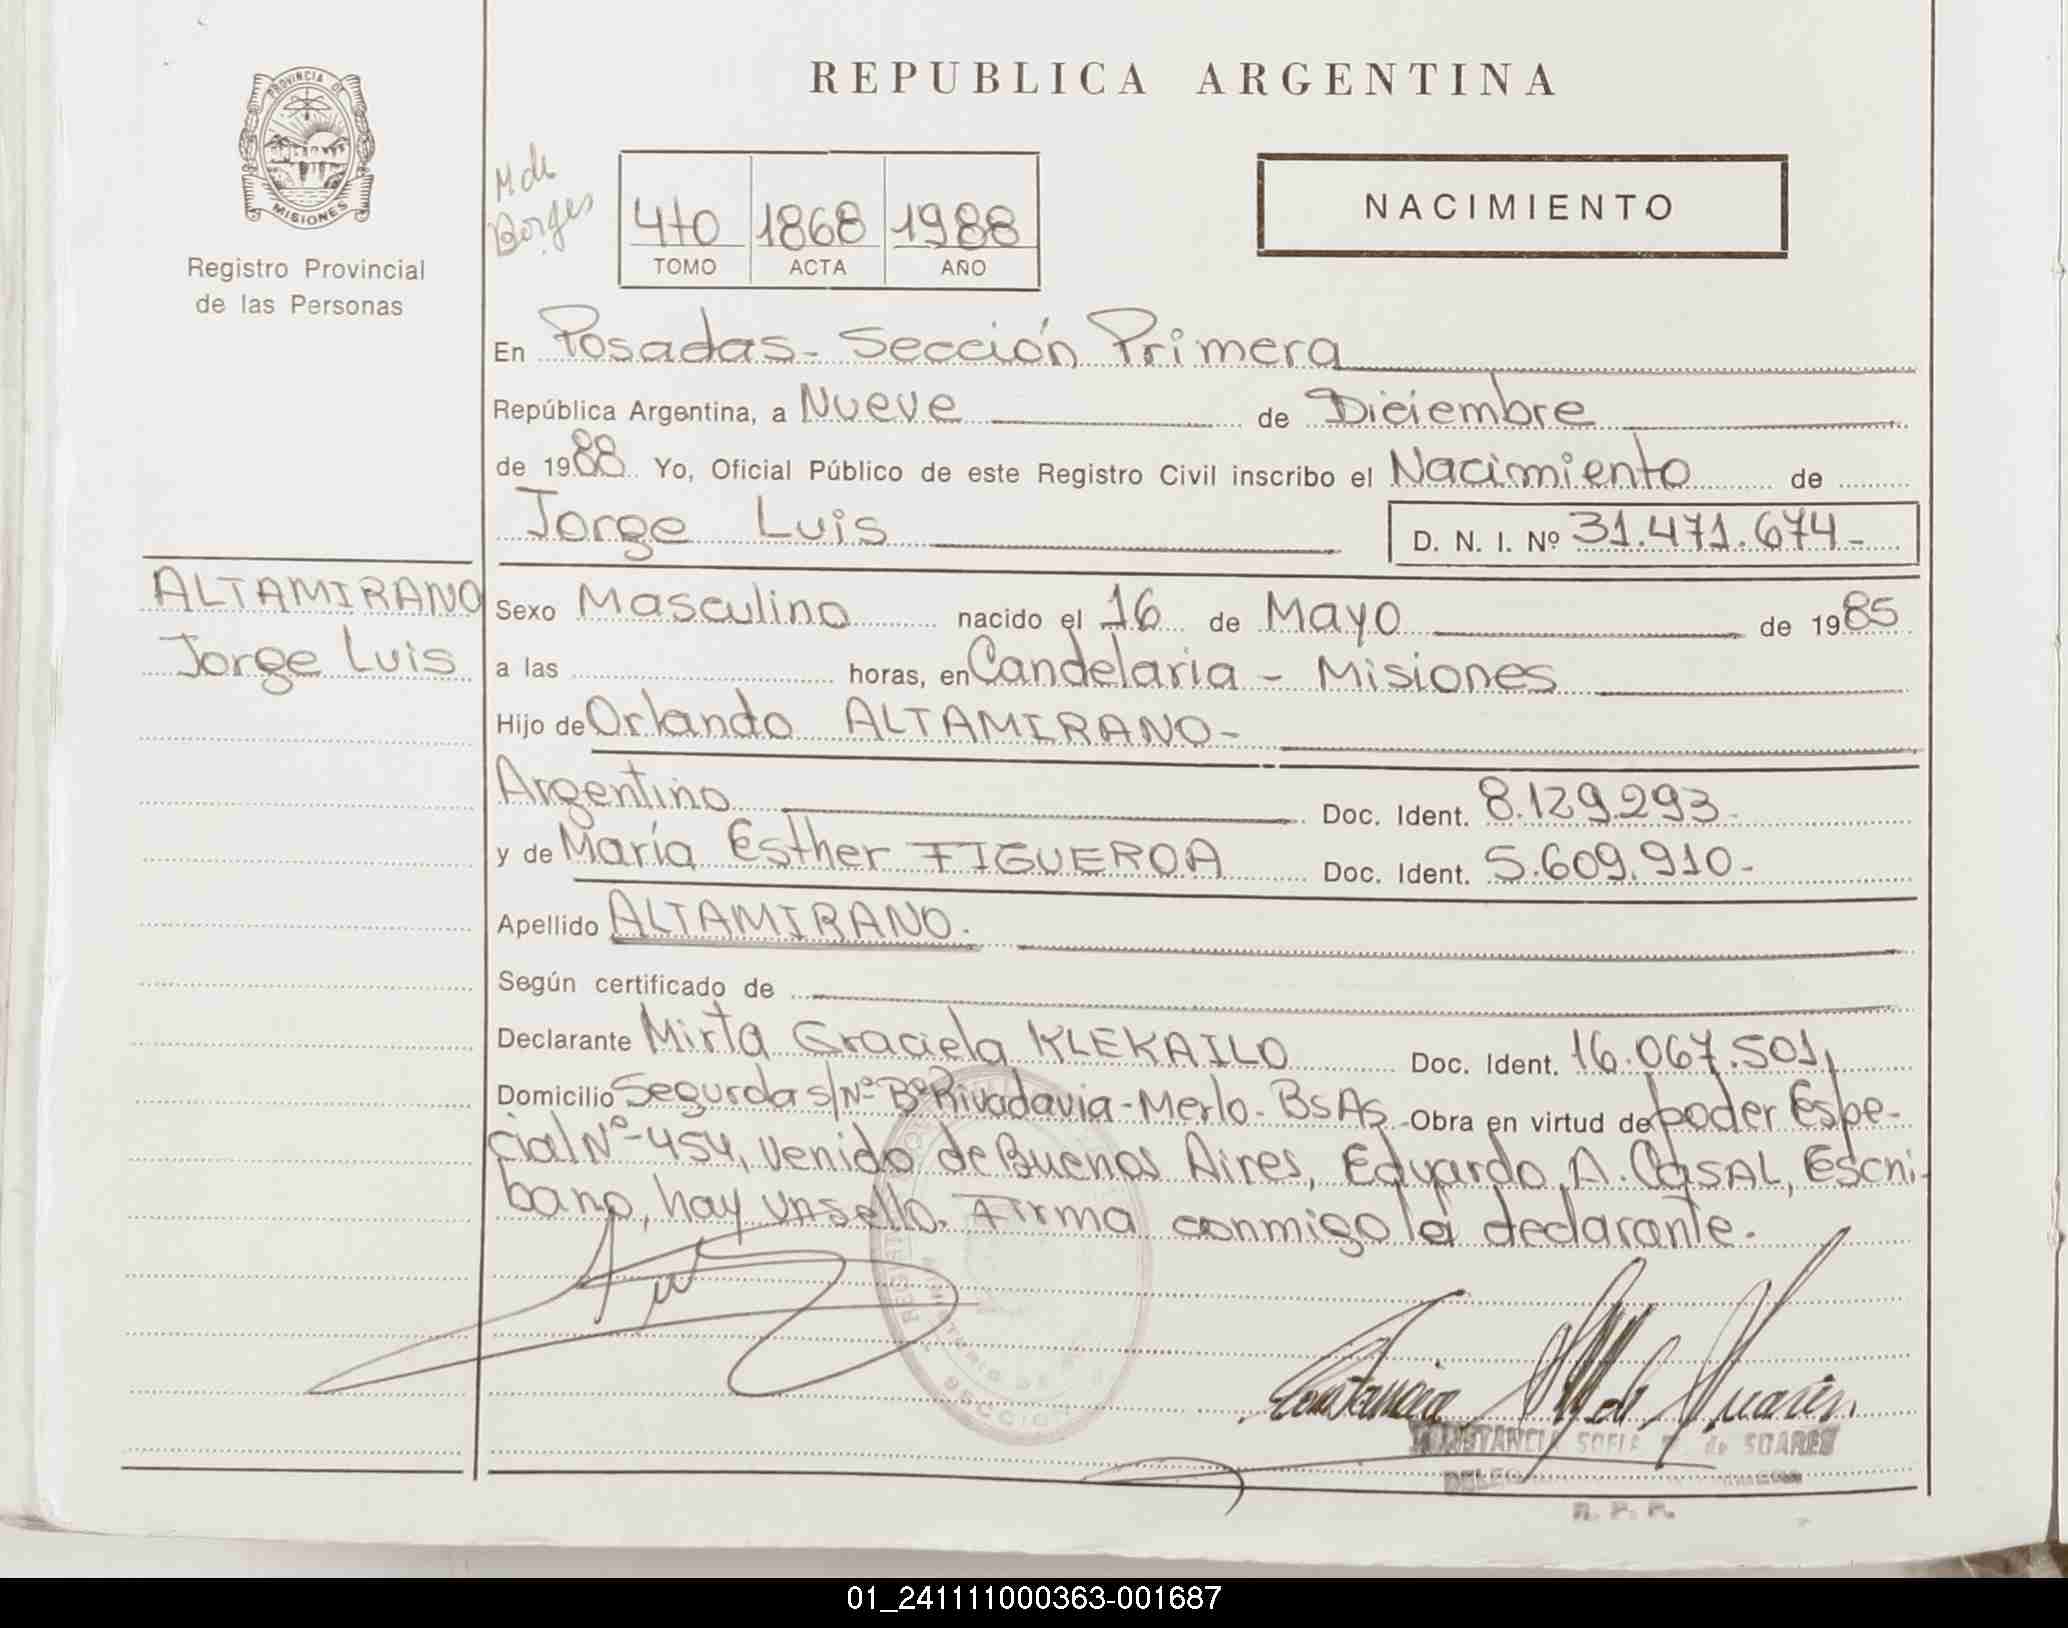 PROVINCIA DE
MISIONES
Registro Provincial
de las Personas
REPUBLICA ARGENTINA
M de
Borges
410 1868 1988
TOMO ACTA AÑO
NACIMIENTO
En Posadas - Sección Primera
República Argentina, a Nueve de Diciembre
de 1988 Yo, Oficial Público de este Registro Civil inscribo el Nacimiento de
Jorge Luis D. N. I. Nº 31.471.674-
ALTAMIRANO
Jorge Luis
Sexo Masculino nacido el 16 de Mayo de 1985
a las horas, en Candelaria - Misiones
Hijo de Orlando ALTAMIRANO-
Argentino Doc. Ident. 8.129.293-
y de María Esther FIGUEROA Doc. Ident. 5.609.910-
Apellido ALTAMIRANO.
Según certificado de
Declarante Mirta Graciela KLEKAILO Doc. Ident. 16.067.501,
Domicilio Segurda s/Nº Bº Rivadavia - Merlo - BsAs - Obra en virtud de poder Espe-
cial Nº-454, venido de Buenos Aires, Eduardo A. CASAL, Escri-
bano, hay un sello. Firma conmigo la declarante.
Constancia de Suarez
CONSTANCIA SOFIA de SOARES
R. P. P.
SECCION
01_241111000363-001687